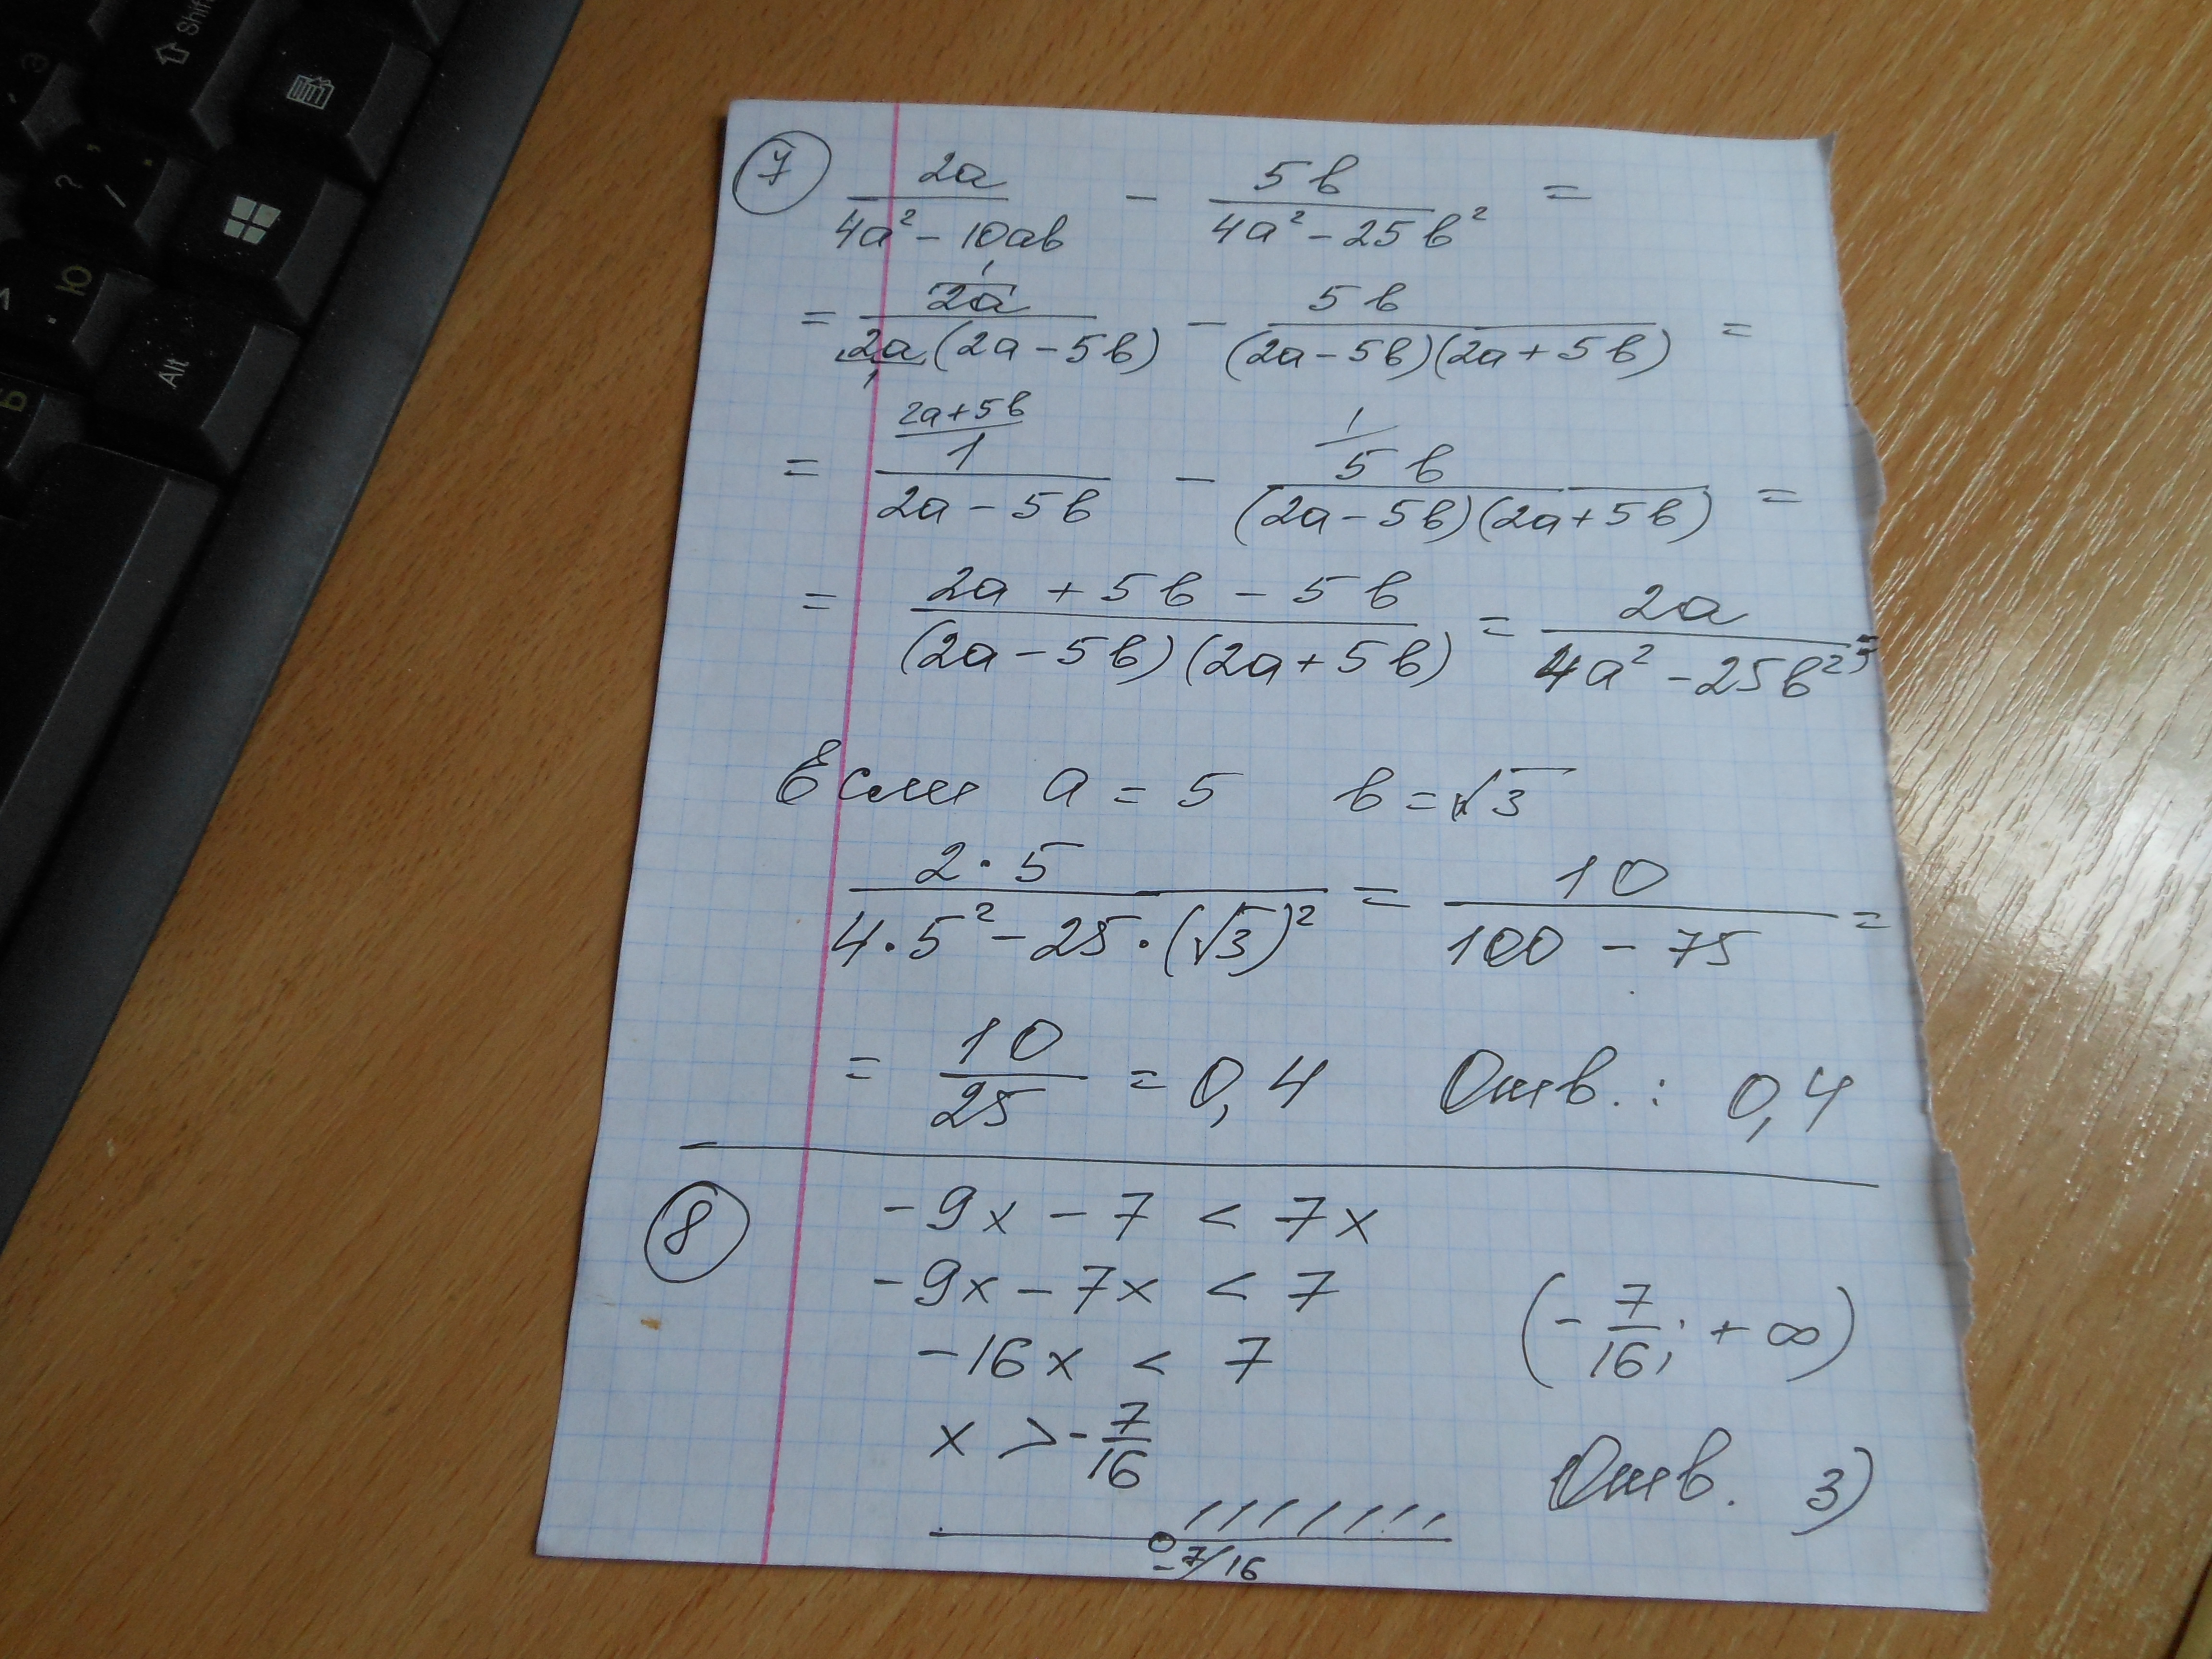 Shift
Э
.
?
,
/
.
>
Ю
.
Alt
Б
7
2a / (4a² - 10ab) - 5b / (4a² - 25b²) =
= 2a / (2a(2a - 5b)) - 5b / ((2a - 5b)(2a + 5b)) =
= 1 / (2a - 5b) - 5b / ((2a - 5b)(2a + 5b)) =
= (2a + 5b - 5b) / ((2a - 5b)(2a + 5b)) = 2a / (4a² - 25b²)
Если a = 5 b = √3
2·5 / (4·5² - 25·(√3)²) = 10 / (100 - 75) =
= 10/25 = 0,4 Отв.: 0,4
8
-9x - 7 < 7x
-9x - 7x < 7
-16x < 7
(-7/16; +∞)
x > -7/16
Отв. 3)
-7/16